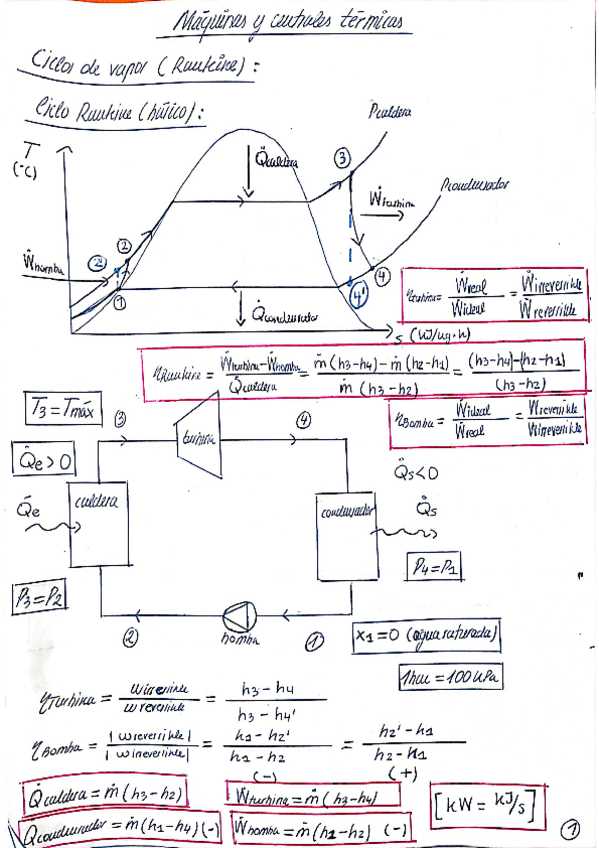 Máquinas y centrales térmicas
Ciclos de vapor (Rankine):
Ciclo Rankine (básico):
T
(°C)
Pcaldera
Q̇caldera
③
Ẇturbina
Pcondensador
Ẇbomba
②'
②
①
④
④'
Q̇condensador
s (kJ/kg·K)
ηturbina = Ẇreal / Ẇideal = Ẇirreversible / Ẇreversible
ηRankine = Ẇturbina - Ẇbomba / Q̇caldera = ṁ(h3-h4) - ṁ(h2-h1) / ṁ(h3-h2) = (h3-h4)-(h2-h1) / (h3-h2)
ηBomba = Ẇideal / Ẇreal = Ẇreversible / Ẇirreversible
T3 = Tmáx
③
turbina
④
Q̇e > 0
Q̇s < 0
Q̇e
caldera
condensador
Q̇s
P4 = P1
P3 = P2
②
bomba
①
x1 = 0 (agua saturada)
1 bar = 100 kPa
ηTurbina = w irreversible / w reversible = h3 - h4 / h3 - h4'
ηBomba = |w reversible| / |w irreversible| = h1 - h2' / h1 - h2 (-) = h2' - h1 / h2 - h1 (+)
Q̇caldera = ṁ(h3-h2)
Ẇturbina = ṁ(h3-h4)
[kW = kJ/s]
Q̇condensador = ṁ(h1-h4) (-)
Ẇbomba = ṁ(h1-h2) (-)
①